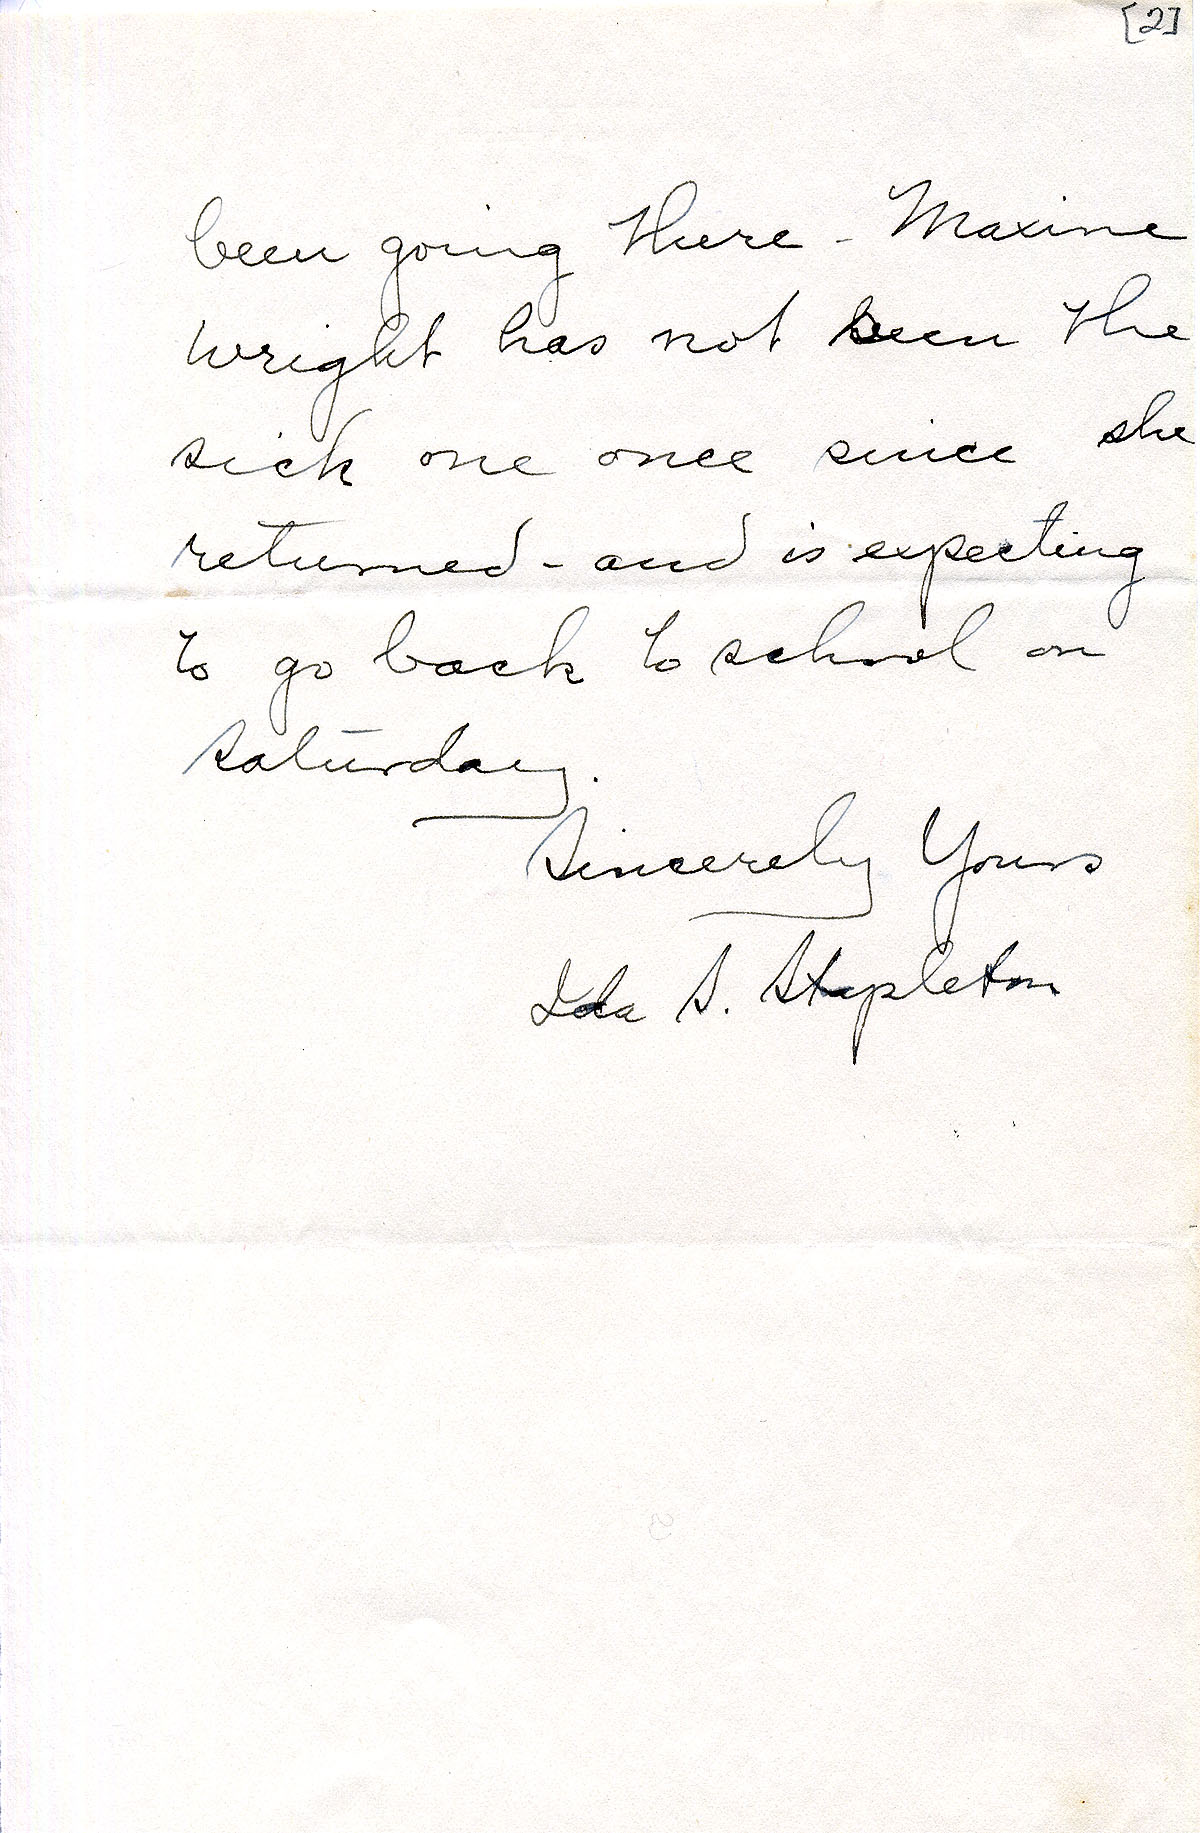 [2]
been going there - Maxine
Wright has not seen the
sick one once since she
returned - and is expecting
to go back to school on
Saturday.
Sincerely Yours
Ida S. Stapleton